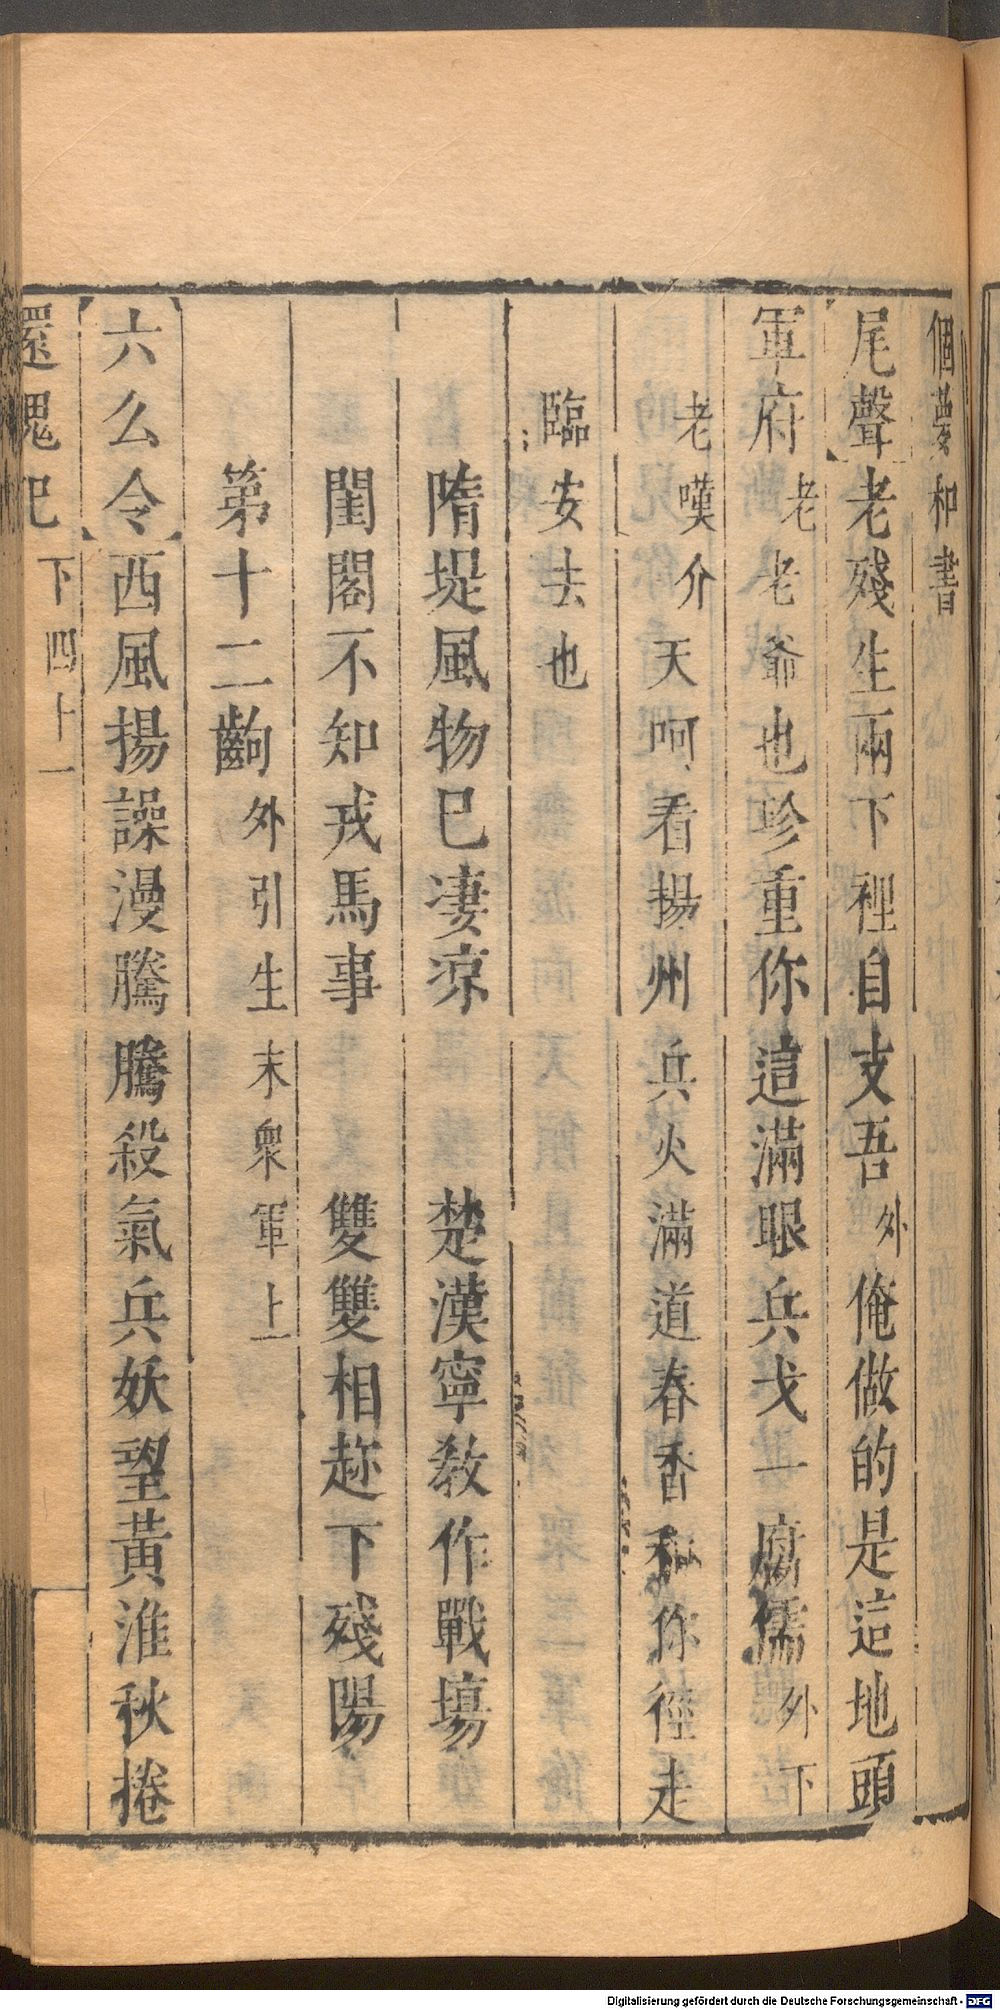 個夢和書
尾聲老殘生兩下裡自支吾外俺做的是這地頭
軍府老老爺也珍重你這滿眼兵戈一腐儒外下
老嘆介天呵看揚州兵火滿道春香和你徑走
臨安去也
隋堤風物已凄凉　楚漢寧教作戰場
閨閣不知戎馬事　雙雙相趂下殘陽
第十二齣外引生末衆軍上
六么令西風揚譟漫騰騰殺氣兵妖望黃淮秋捲
還魂記　下四十一
Digitalisierung gefördert durch die Deutsche Forschungsgemeinschaft - DFG